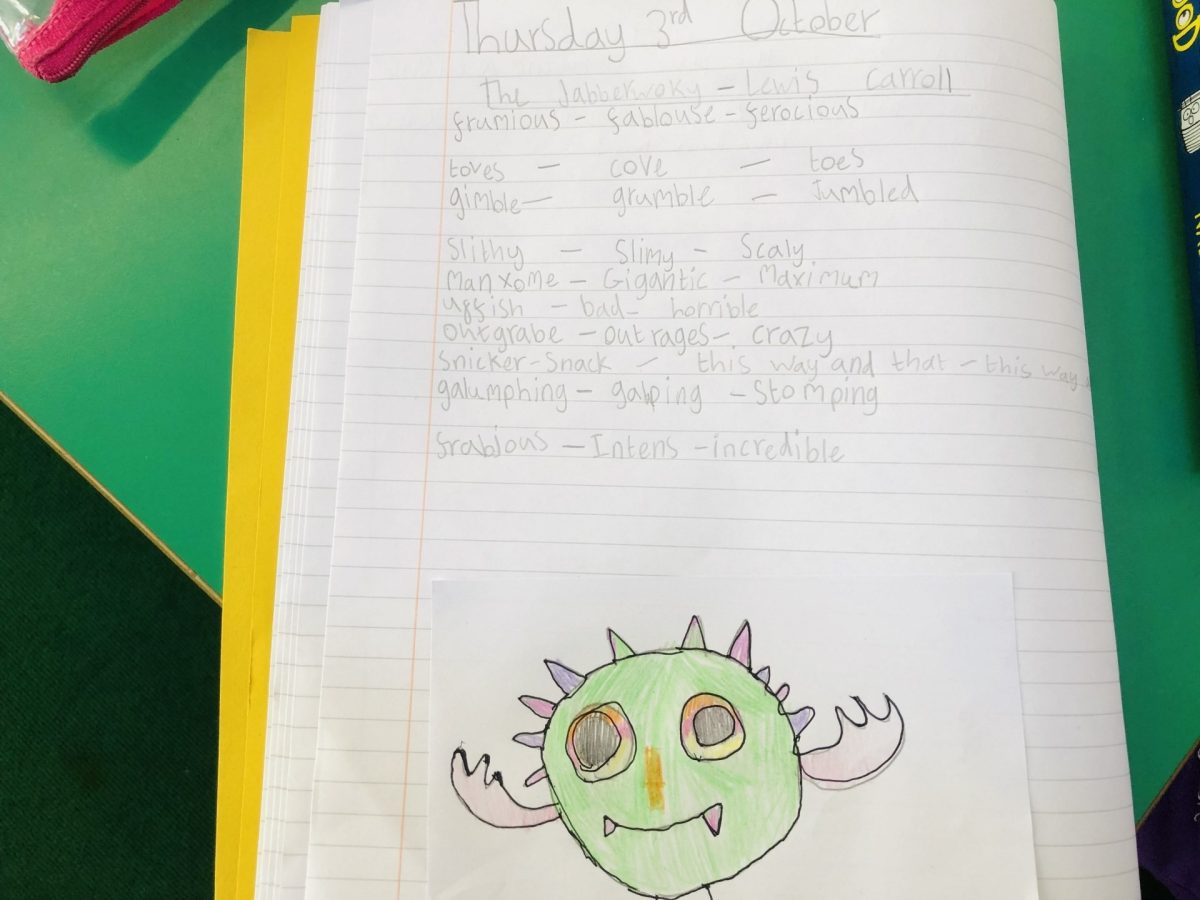 Thursday 3rd October
The Jabberwoky - Lewis Carroll
frumious - fablouse - ferocious
toves - cove - toes
gimble - grumble - Jumbled
Slithy - Slimy - Scaly
manxome - Gigantic - Maximum
uffish - bad - horrible
outgrabe - outrages - crazy
Snicker-Snack - this way and that - this way
galumphing - galping - Stomping
frabjous - Intens - incredible